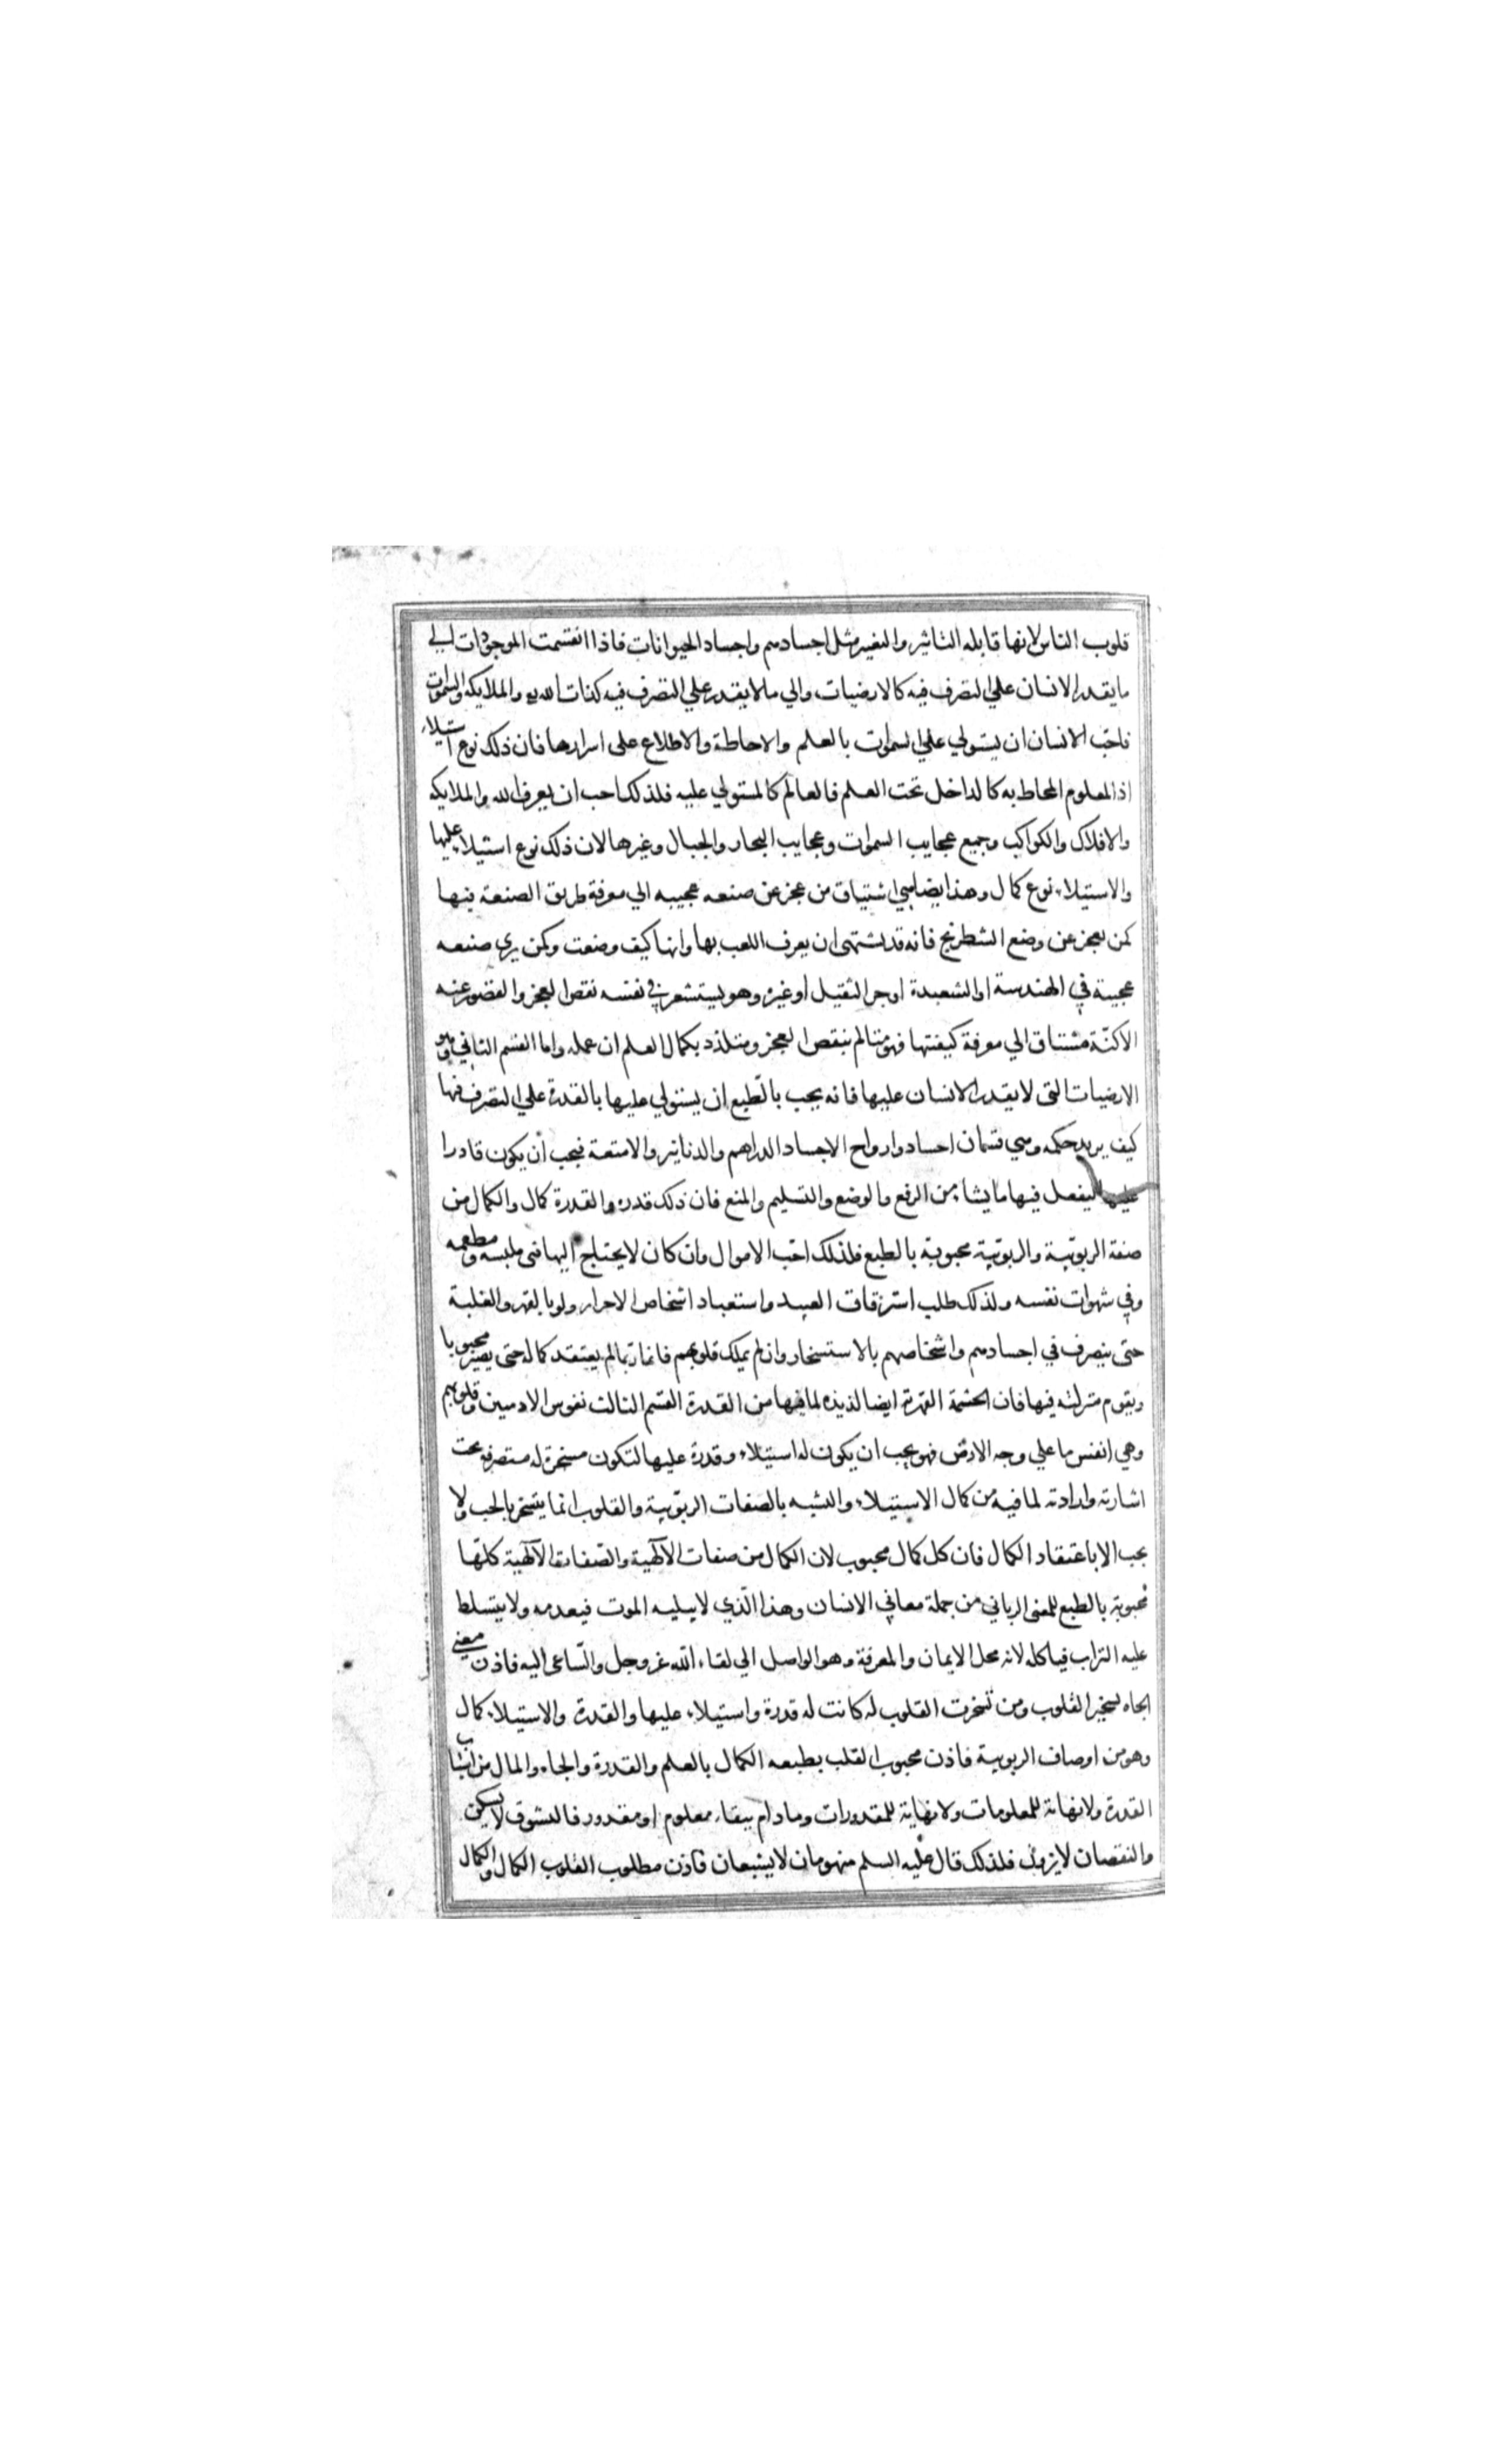 قلوب الناس لانها قابله التاثير والتغيير مثل اجسادهم واجساد الحيوانات فاذا انقسمت الموجودات الي
ما يقدر الانسان علي التصرف فيه كالارضيات والي ما لا يقدر علي التصرف فيه كذات الله والملايكه والسموات
فاحب الانسان ان يستولي علي السموات بالعلم والاحاطة والاطلاع على اسرارها فان ذلك نوع استيلاء
اذ المعلوم المحاط به كالداخل تحت العلم فالعالم كالمستولي عليه فلذلك احب ان يعرف الله والملايكه
والافلاك والكواكب وجميع عجايب السموات وعجايب البحار والجبال وغيرها لان ذلك نوع استيلا عليها
والاستيلاء نوع كمال وهذا يضاهي اشتياق من عجز عن صنعه عجيبه الي معرفة طريق الصنعة فيها
كمن يعجز عن وضع الشطرنج فانه قد يشتهى ان يعرف اللعب بها وانها كيف وضعت وكمن يري صنعه
عجيبة في الهندسة او الشعبدة او جر الثقيل او غيره وهو يستشعر في نفسه نقص العجز والقصور عنه
الا كنه مشتاق الي معرفة كيفتها فهو متالم بنقص العجز ومتلذذ بكمال العلم ان علمه واما القسم الثاني وهو
الارضيات التى لا يقدر الانسان عليها فانه يحب بالطبع ان يستولي عليها بالقدرة علي التصرف فيها
كيف يريد حكمه وهي قسمان اجساد وارواح الاجساد الدراهم والدنانير والامتعة فيحب أن يكون قادرا
عليها ليفعل فيها ما يشا من الرفع والوضع والتسليم والمنع فان ذلك قدره والقدرة كمال والكمال من
صفة الربوبية والربوبية محبوبة بالطبع فلذلك احب الاموال وان كان لا يحتاج اليها في ملبسه ومطعمه
وفي شهوات نفسه ولذلك طلب استرقاق العبيد واستعباد اشخاص الاحرار ولو بالقهر والغلبة
حتى يتصرف في اجسادهم واشخاصهم بالاستسخار وان لم يملك قلوبهم فانها ربما لم يعتقد كماله حتى يصير محبوبا
ويقوم منزلته فيها فان الحشمة القهرية ايضا لذيذه لما فيها من القدرة القسم الثالث نفوس الادميين وقلوبهم
وهي انفس ما علي وجه الارض فهو يحب ان يكون له استيلاء وقدرة عليها لتكون مسخرة له متصرفه تحت
اشارته وارادته لما فيه من كمال الاستيلاء والتشبه بالصفات الربوبية والقلوب انما يتسخر بالحب ولا
يحب الا باعتقاد الكمال فان كل كمال محبوب لان الكمال من صفات الالهية والصفات الالهية كلها
محبوبة بالطبع للمعنى الرباني من جملة معاني الانسان وهذا الذي لا يبليه الموت فيعدمه ولا يتسلط
عليه التراب فياكله لانه محل الايمان والمعرفة وهو الواصل الي لقاء الله عز وجل والساعي اليه فاذن معني
الجاه تسخير القلوب ومن تسخرت القلوب له كانت له قدرة واستيلاء عليها والقدرة والاستيلاء كمال
وهو من اوصاف الربوبية فاذن محبوب القلب بطبعه الكمال بالعلم والقدرة والجاه والمال من اسباب
القدرة ولا نهاية للمعلومات ولا نهاية للمقدورات وما دام يبقاء معلوم او مقدور فالشوق لا يسكن
والنقصان لا يزول فلذلك قال عليه السلم منهومان لا يشبعان فاذن مطلوب القلوب الكمال والكمال